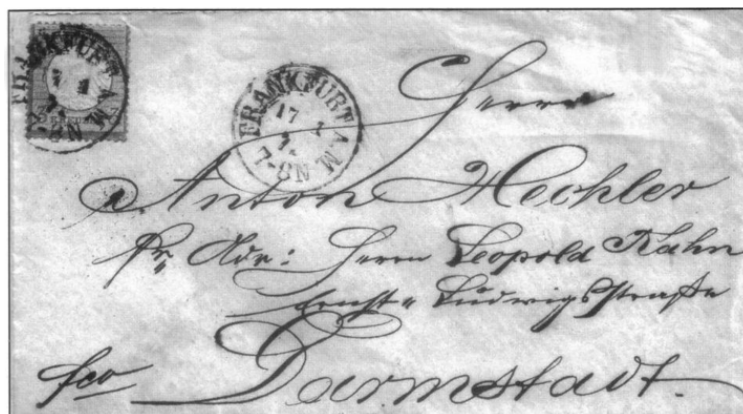 FRANKFURT A.M.
FRANKFURT A.M.
17
7-8N
Herrn
Anton Hechler
pr. Adr: Herrn Leopold Kahn
Ernst-Ludwigsstraße
fco Darmstadt.